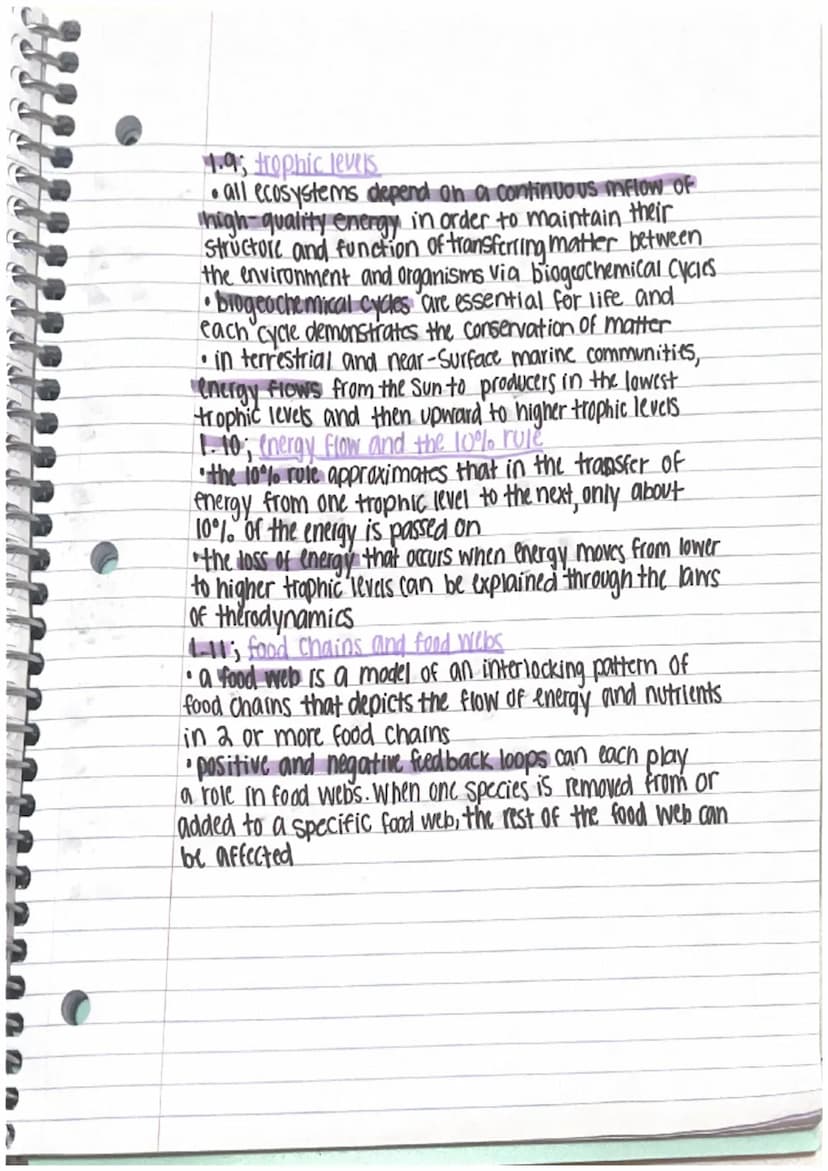 1.9; trophic levels
• all ecosystems depend on a continuous inflow of
high-quality energy in order to maintain their
structure and function of transferring matter between
the environment and organisms via biogeochemical cycles
• biogeochemical cycles are essential for life and
each cycle demonstrates the conservation of matter
• in terrestrial and near-surface marine communities,
energy flows from the sun to producers in the lowest
trophic levels and then upward to higher trophic levels
1.10; energy flow and the 10% rule
• the 10% rule approximates that in the transfer of
energy from one trophic level to the next, only about
10% of the energy is passed on
• the loss of energy that occurs when energy moves from lower
to higher trophic levels can be explained through the laws
of therodynamics
1.11; food chains and food webs
• a food web is a model of an interlocking pattern of
food chains that depicts the flow of energy and nutrients
in 2 or more food chains
• positive and negative feedback loops can each play
a role in food webs. When one species is removed from or
added to a specific food web, the rest of the food web can
be affected